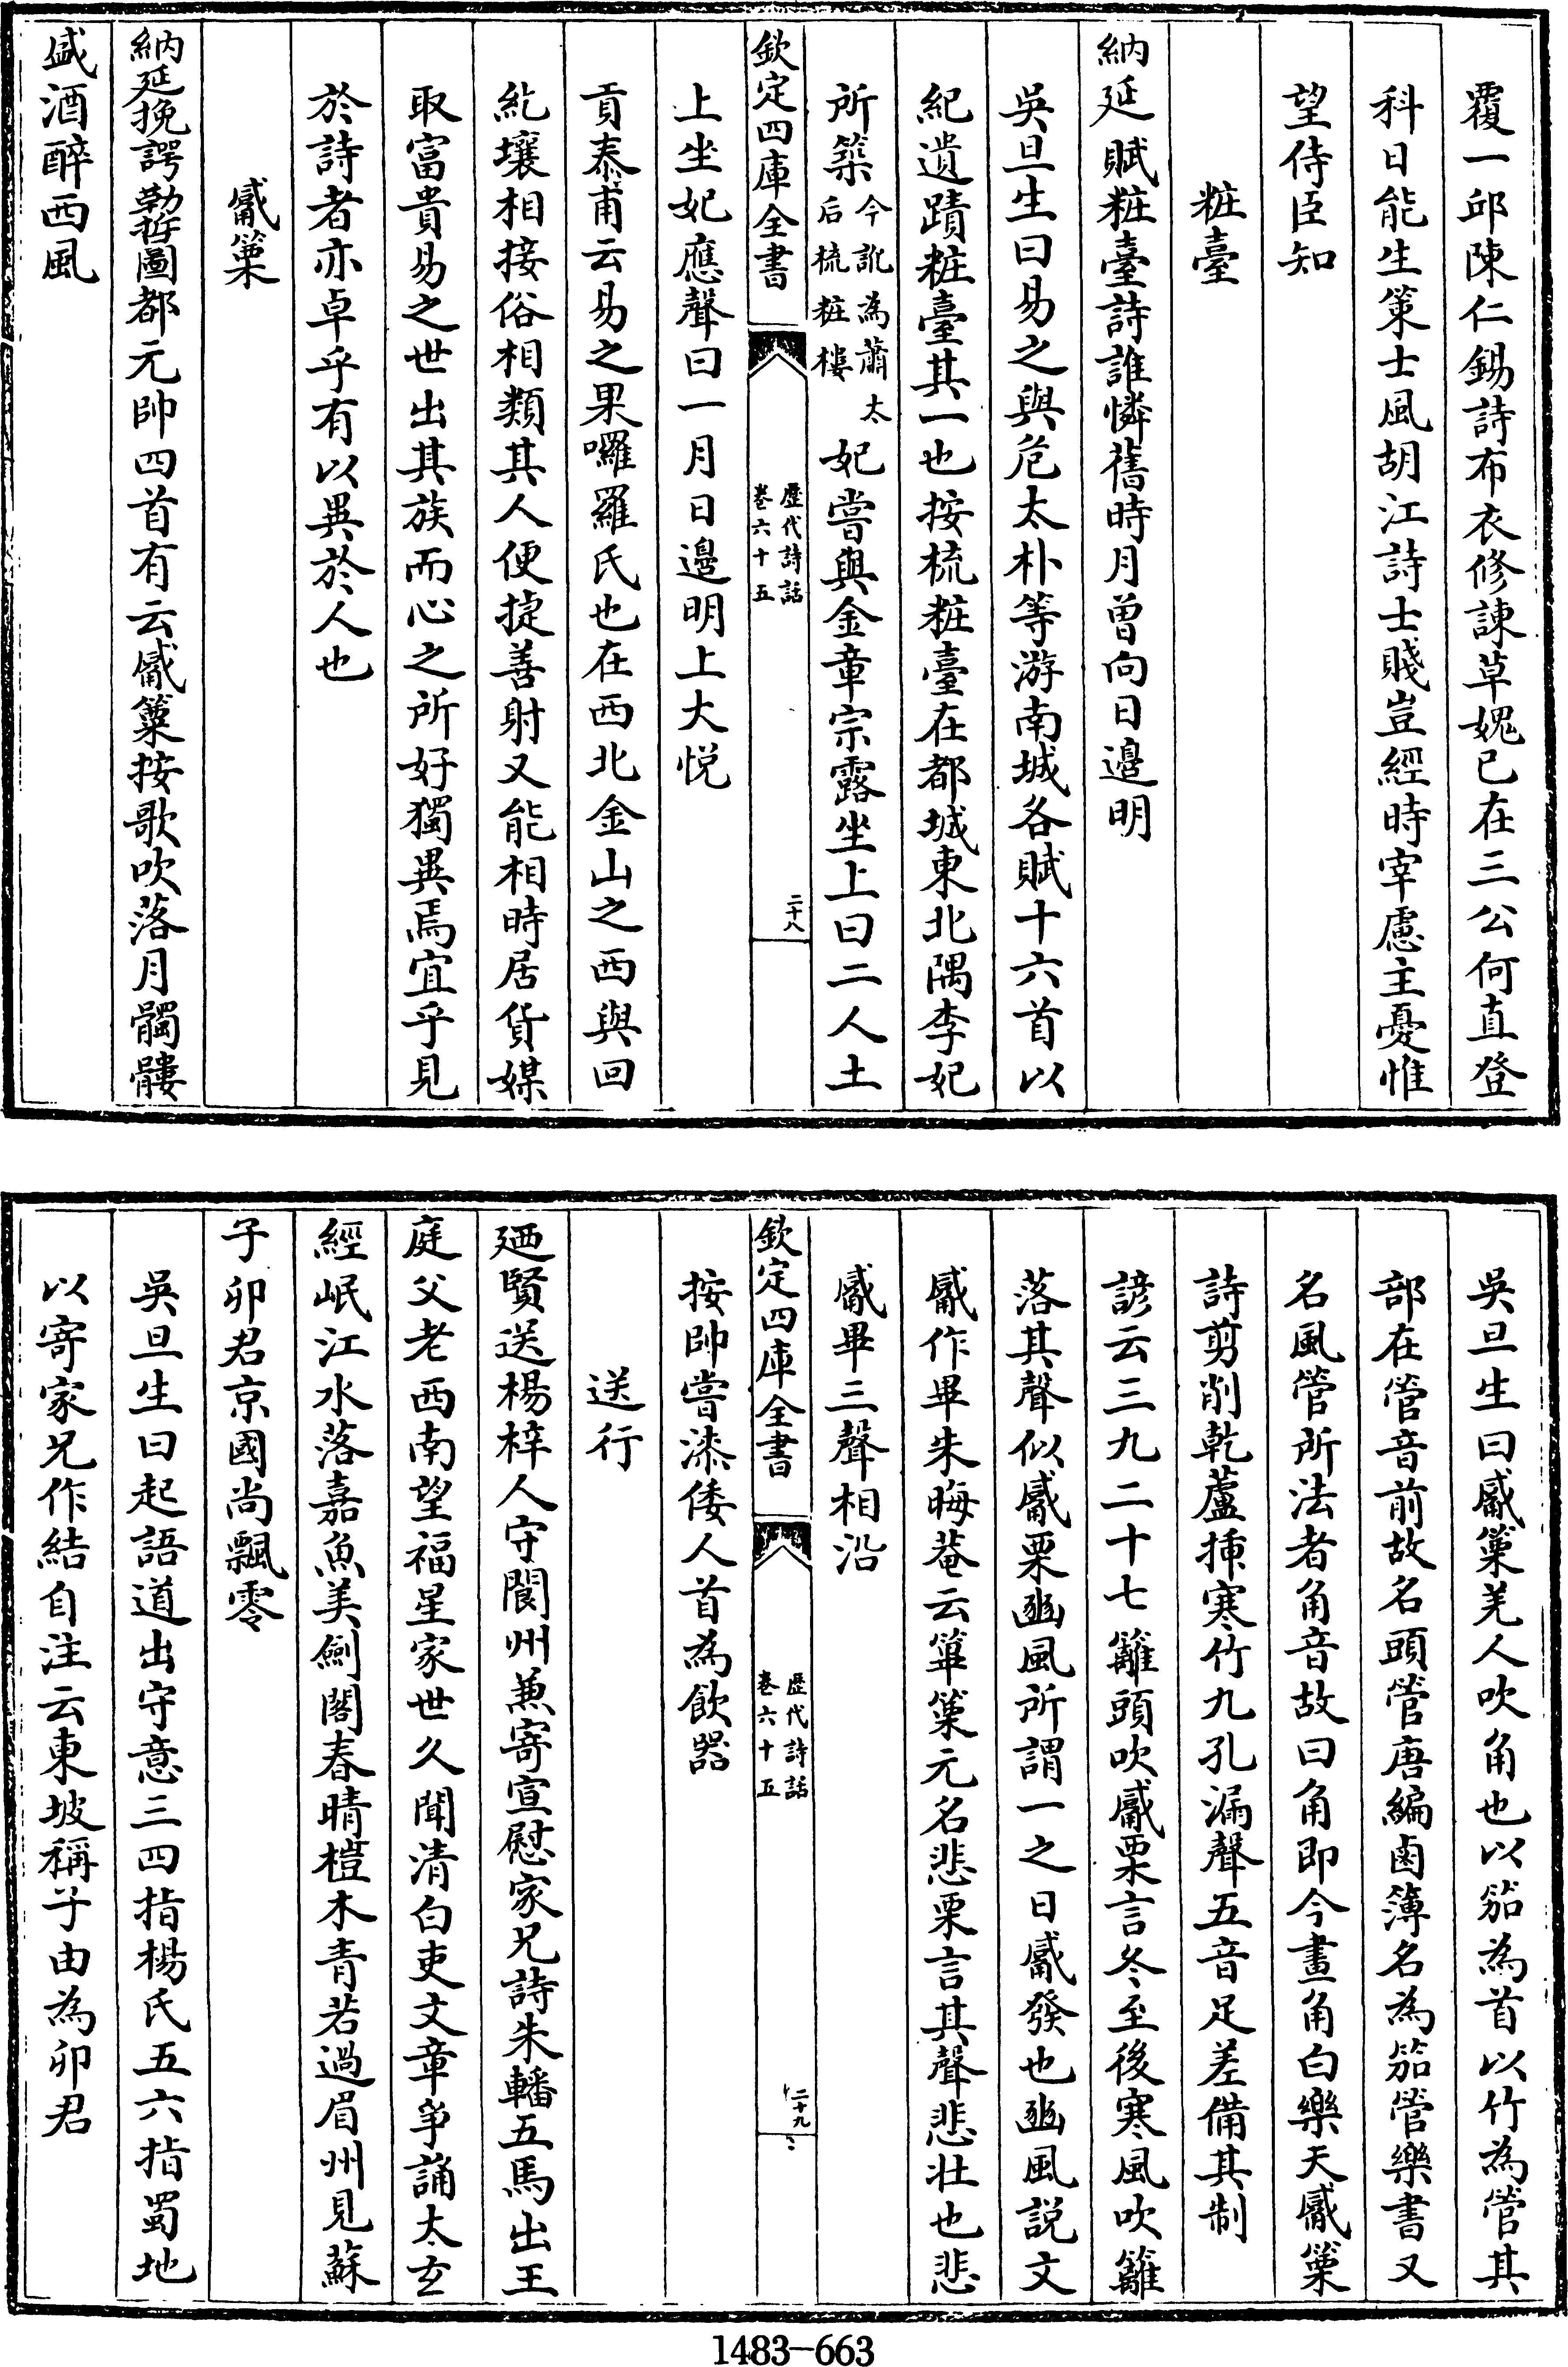 覆一邱陳仁錫詩布衣修諫草媿已在三公何直登
科日能生策士風胡江詩士賤豈經時宰慮主憂惟
望侍臣知
粧臺
納延賦粧臺詩誰憐舊時月曾向日邉明
吳旦生曰易之與危太朴等游南城各賦十六首以
紀遺蹟粧臺其一也按梳粧臺在都城東北隅李妃
所築今訛為蕭太后梳粧樓妃嘗與金章宗露坐上曰二人土
欽定四庫全書
歴代詩話
卷六十五
二十八
上坐妃應聲曰一月日邉明上大悅
貢泰甫云易之果囉羅氏也在西北金山之西與回
紇壤相接俗相類其人便捷善射又能相時居貨媒
取富貴易之世出其族而心之所好獨異焉宜乎見
於詩者亦卓乎有以異於人也
觱篥
納延挽諤勒哲圖都元帥四首有云觱篥按歌吹落月髑髏
盛酒醉西風
吳旦生曰觱篥羌人吹角也以笳為首以竹為管其
部在管音前故名頭管唐編鹵簿名為笳管樂書又
名風管所法者角音故曰角即今畫角白樂天觱篥
詩剪削乾蘆揷寒竹九孔漏聲五音足差備其制
諺云三九二十七籬頭吹觱栗言冬至後寒風吹籬
落其聲似觱栗豳風所謂一之日觱發也豳風説文
觱作畢朱晦菴云篳篥元名悲栗言其聲悲壯也悲
觱畢三聲相沿
欽定四庫全書
歴代詩話
卷六十五
二十九
按帥嘗漆倭人首為飲器
送行
廼賢送楊梓人守閬州兼寄宣慰家兄詩朱轓五馬出王
庭父老西南望福星家世久聞清白吏文章爭誦太玄
經岷江水落嘉魚美劍閣春晴榿木青若過眉州見蘇
子卯君京國尚飄零
吳旦生曰起語道出守意三四指楊氏五六指蜀地
以寄家兄作結自注云東坡稱子由為卯君
1483-663